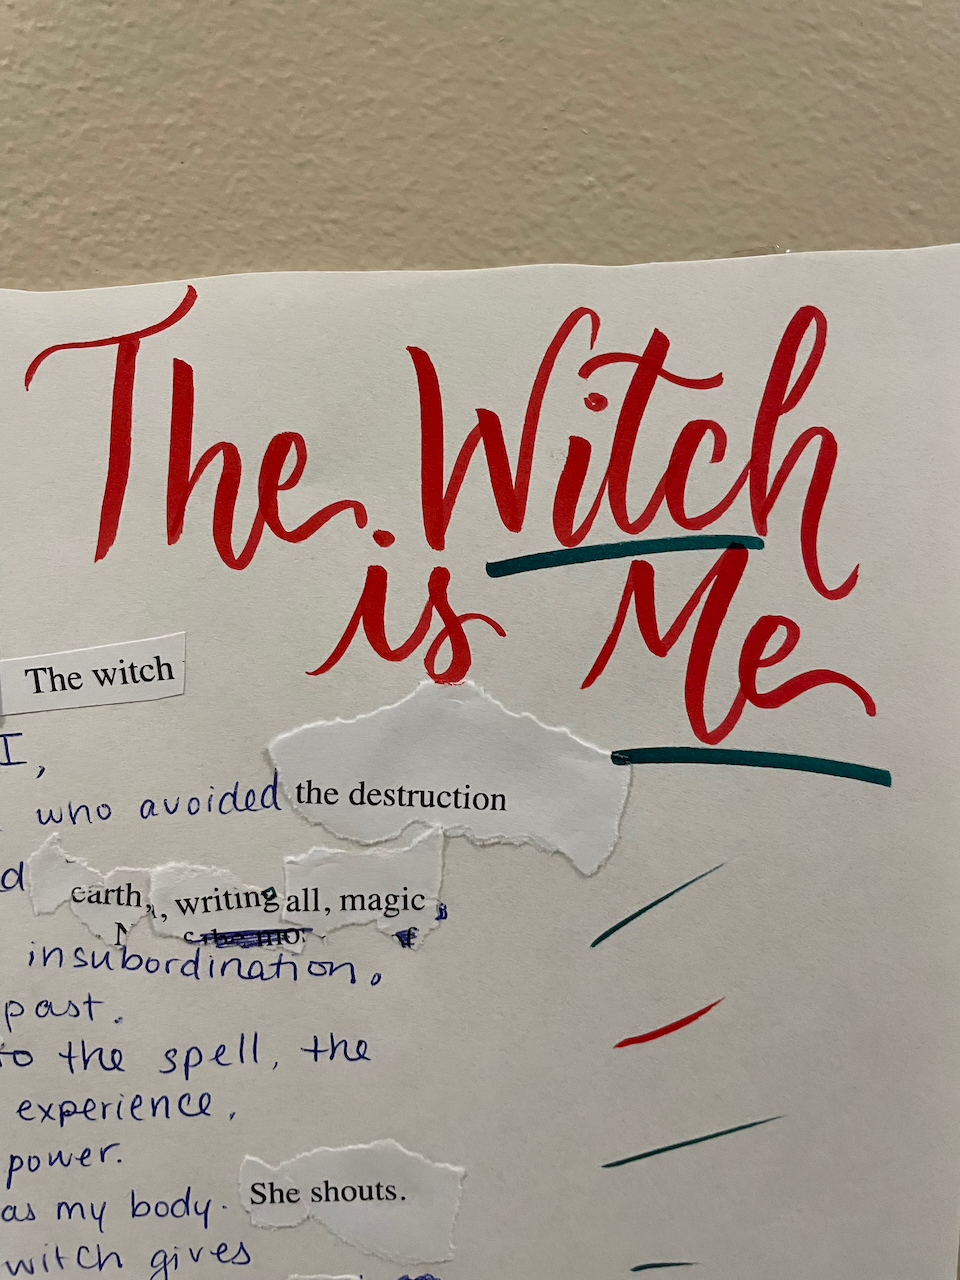 The Witch
is Me
The witch
I,
who avoided the destruction
d earth, writing all, magic,
insubordination,
past.
to the spell, the
experience,
power.
as my body. She shouts.
witch gives